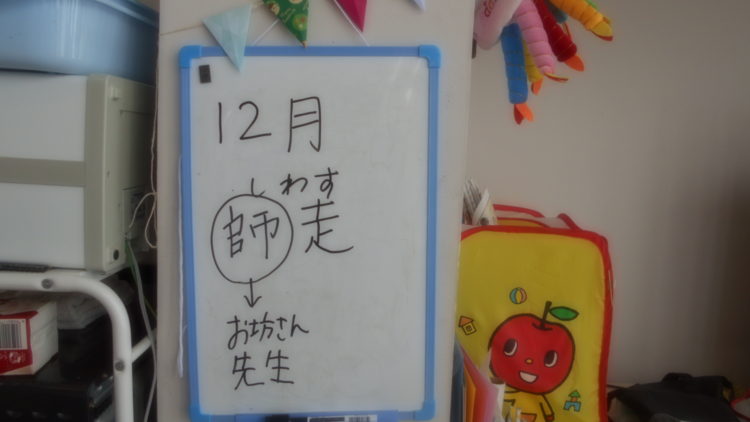 12月
しわす
師走
お坊さん
先生